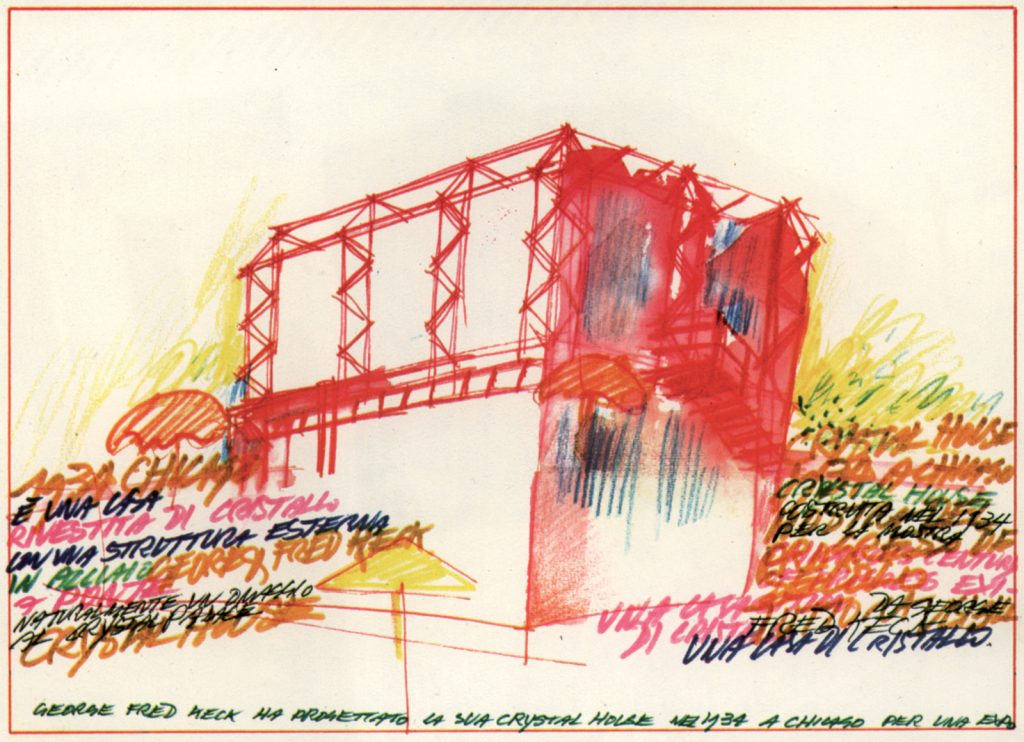 1934 CHICAGO
È UNA CASA
RIVESTITA DI CRISTALLO
CON UNA STRUTTURA ESTERNA
IN ACCIAIO GEORGE, FRED KECK
NATURALMENTE UN OMAGGIO
AL CRYSTAL PALACE
CRYSTAL HOUSE
CRYSTAL HOUSE
1934 A CHICAGO
CRYSTAL HOUSE
COSTRUITA NEL 1934
PER LA MOSTRA
CENTURY
UNA CASA
DI DA GEORGE
FRED KECK
UNA CASA DI CRISTALLO.
GEORGE FRED KECK HA PROGETTATO LA SUA CRYSTAL HOUSE NEL 1934 A CHICAGO PER UNA EXPO